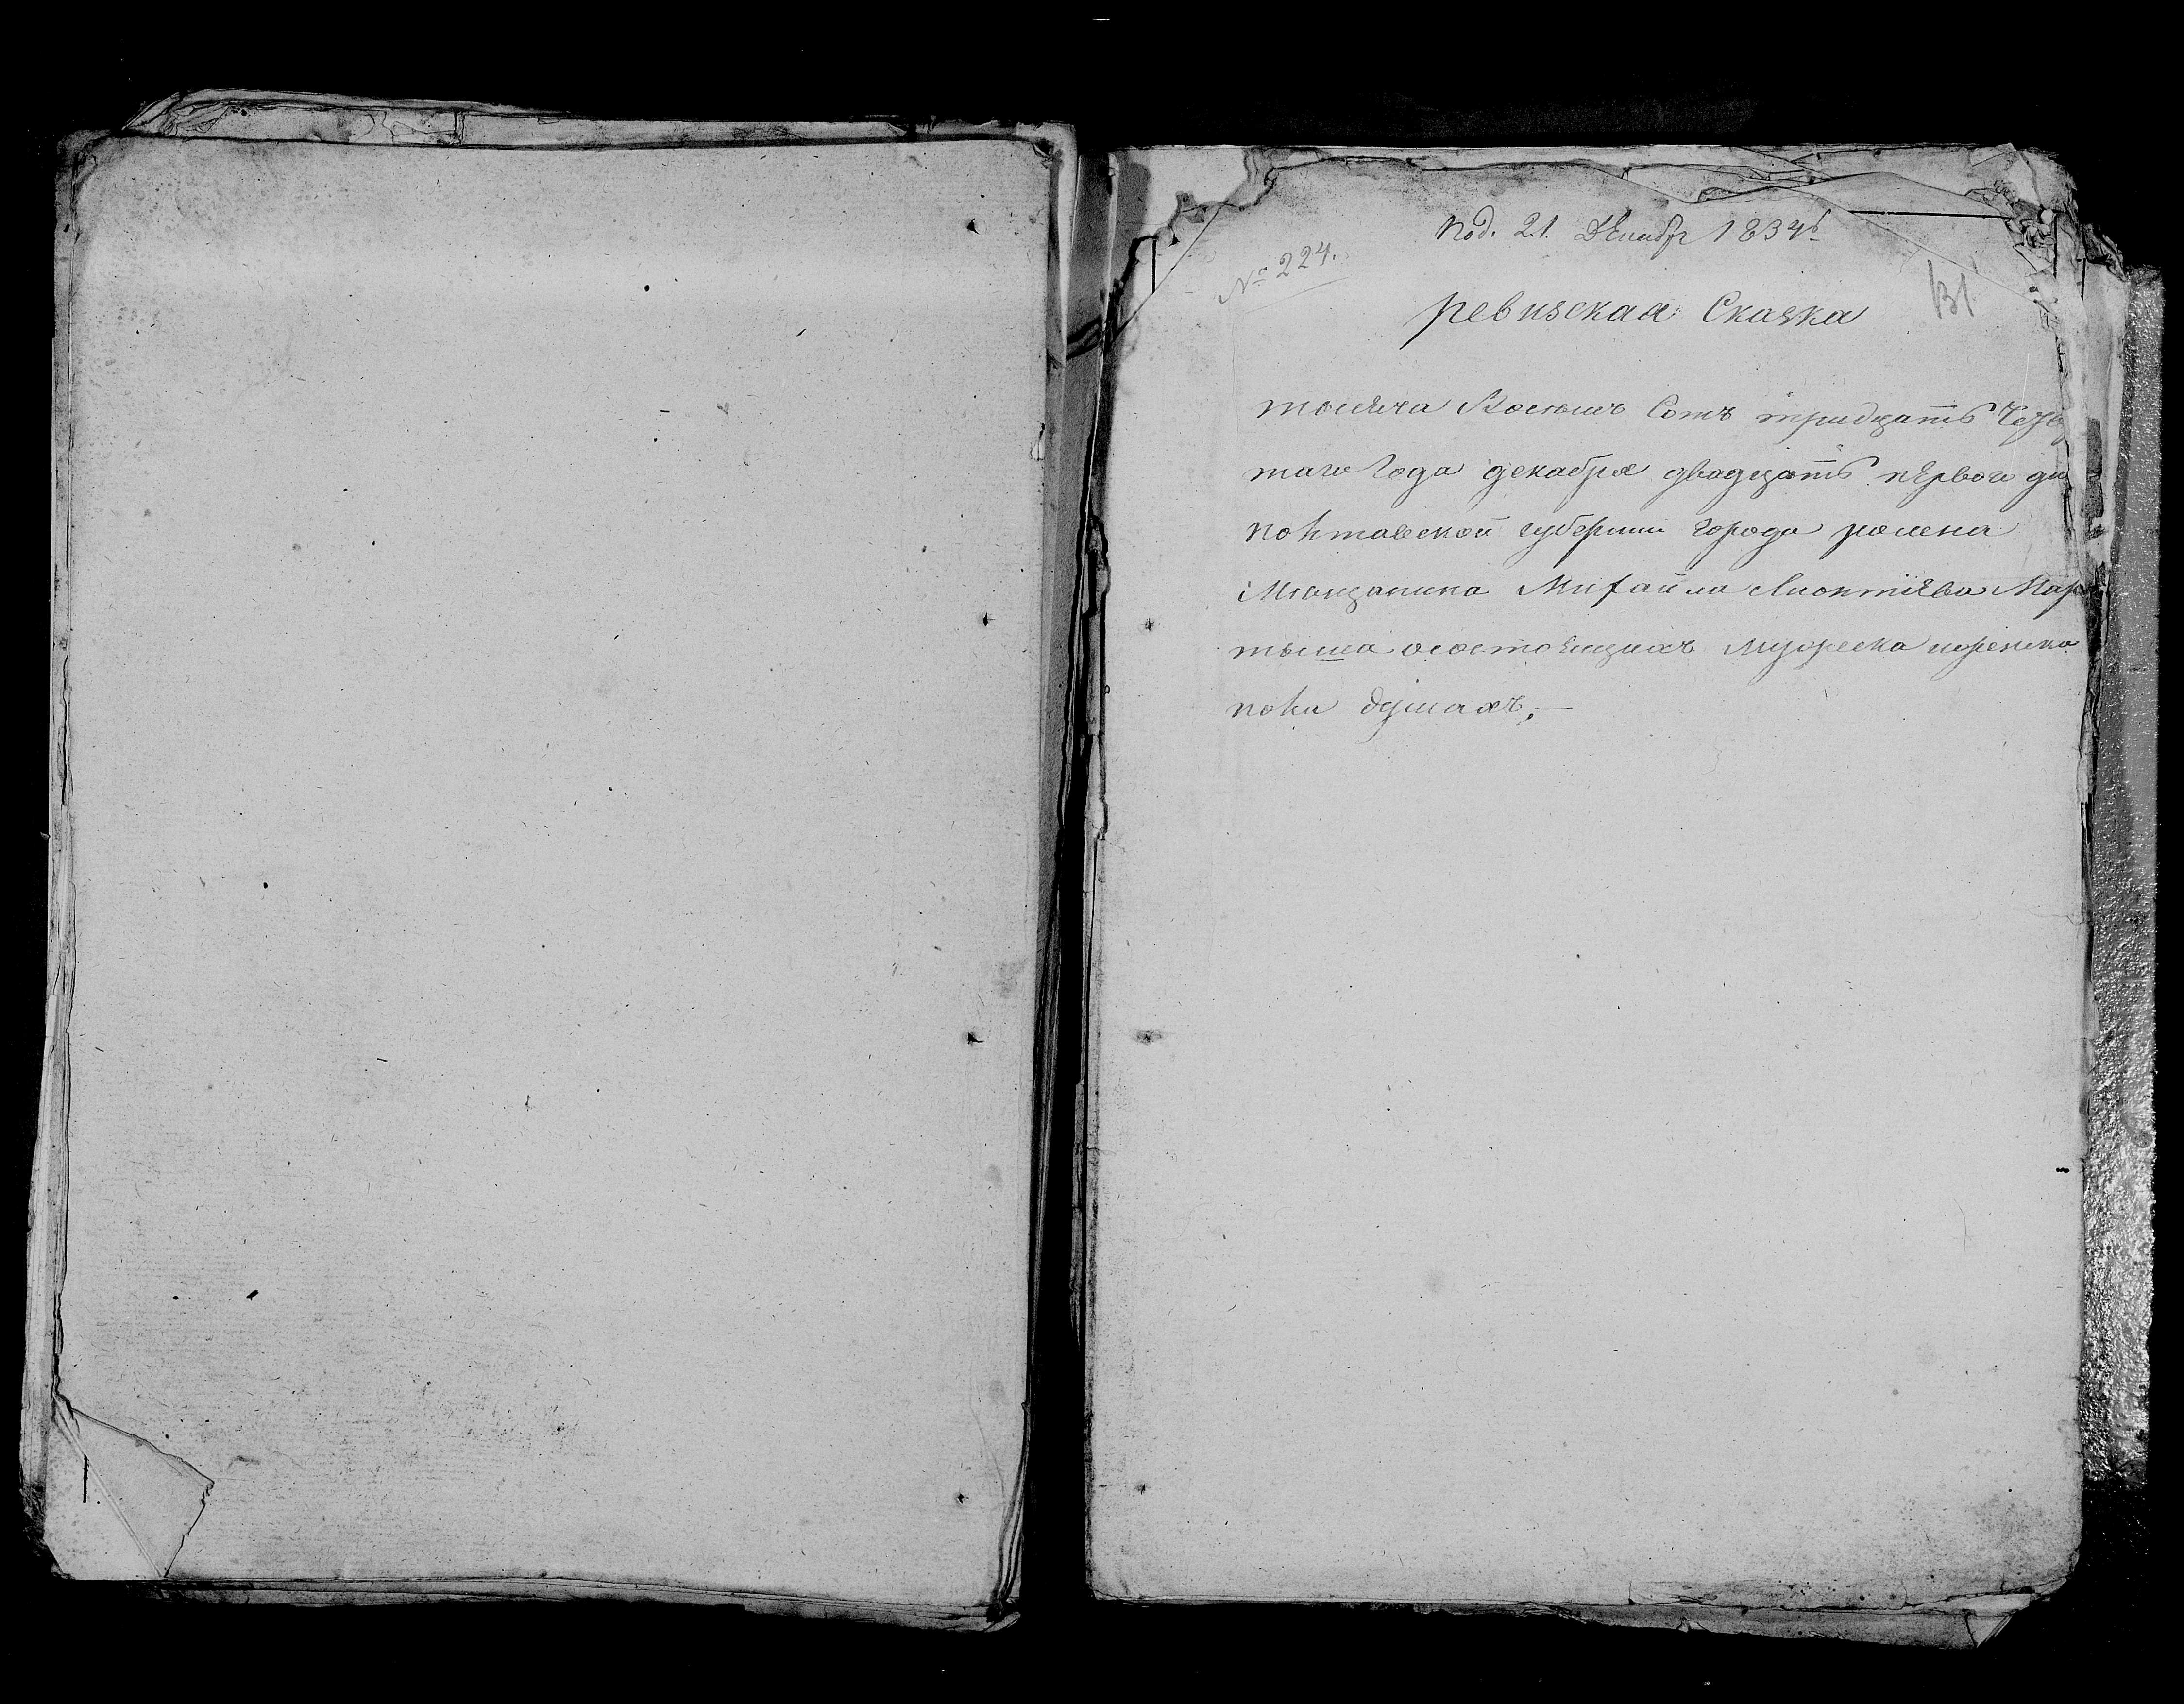 Под. 21. Декабр 1834г
№ 224.
131
ревизская Сказка
тысяча Восемь Сотъ тридцать Чет
таго Года декабря двадцать перваго дн
полтавской губернии города ромена
Мѣщанина Михайла Лионтиева Мар
тыша осостоящихъ мужеска иженска
пола душахъ,—